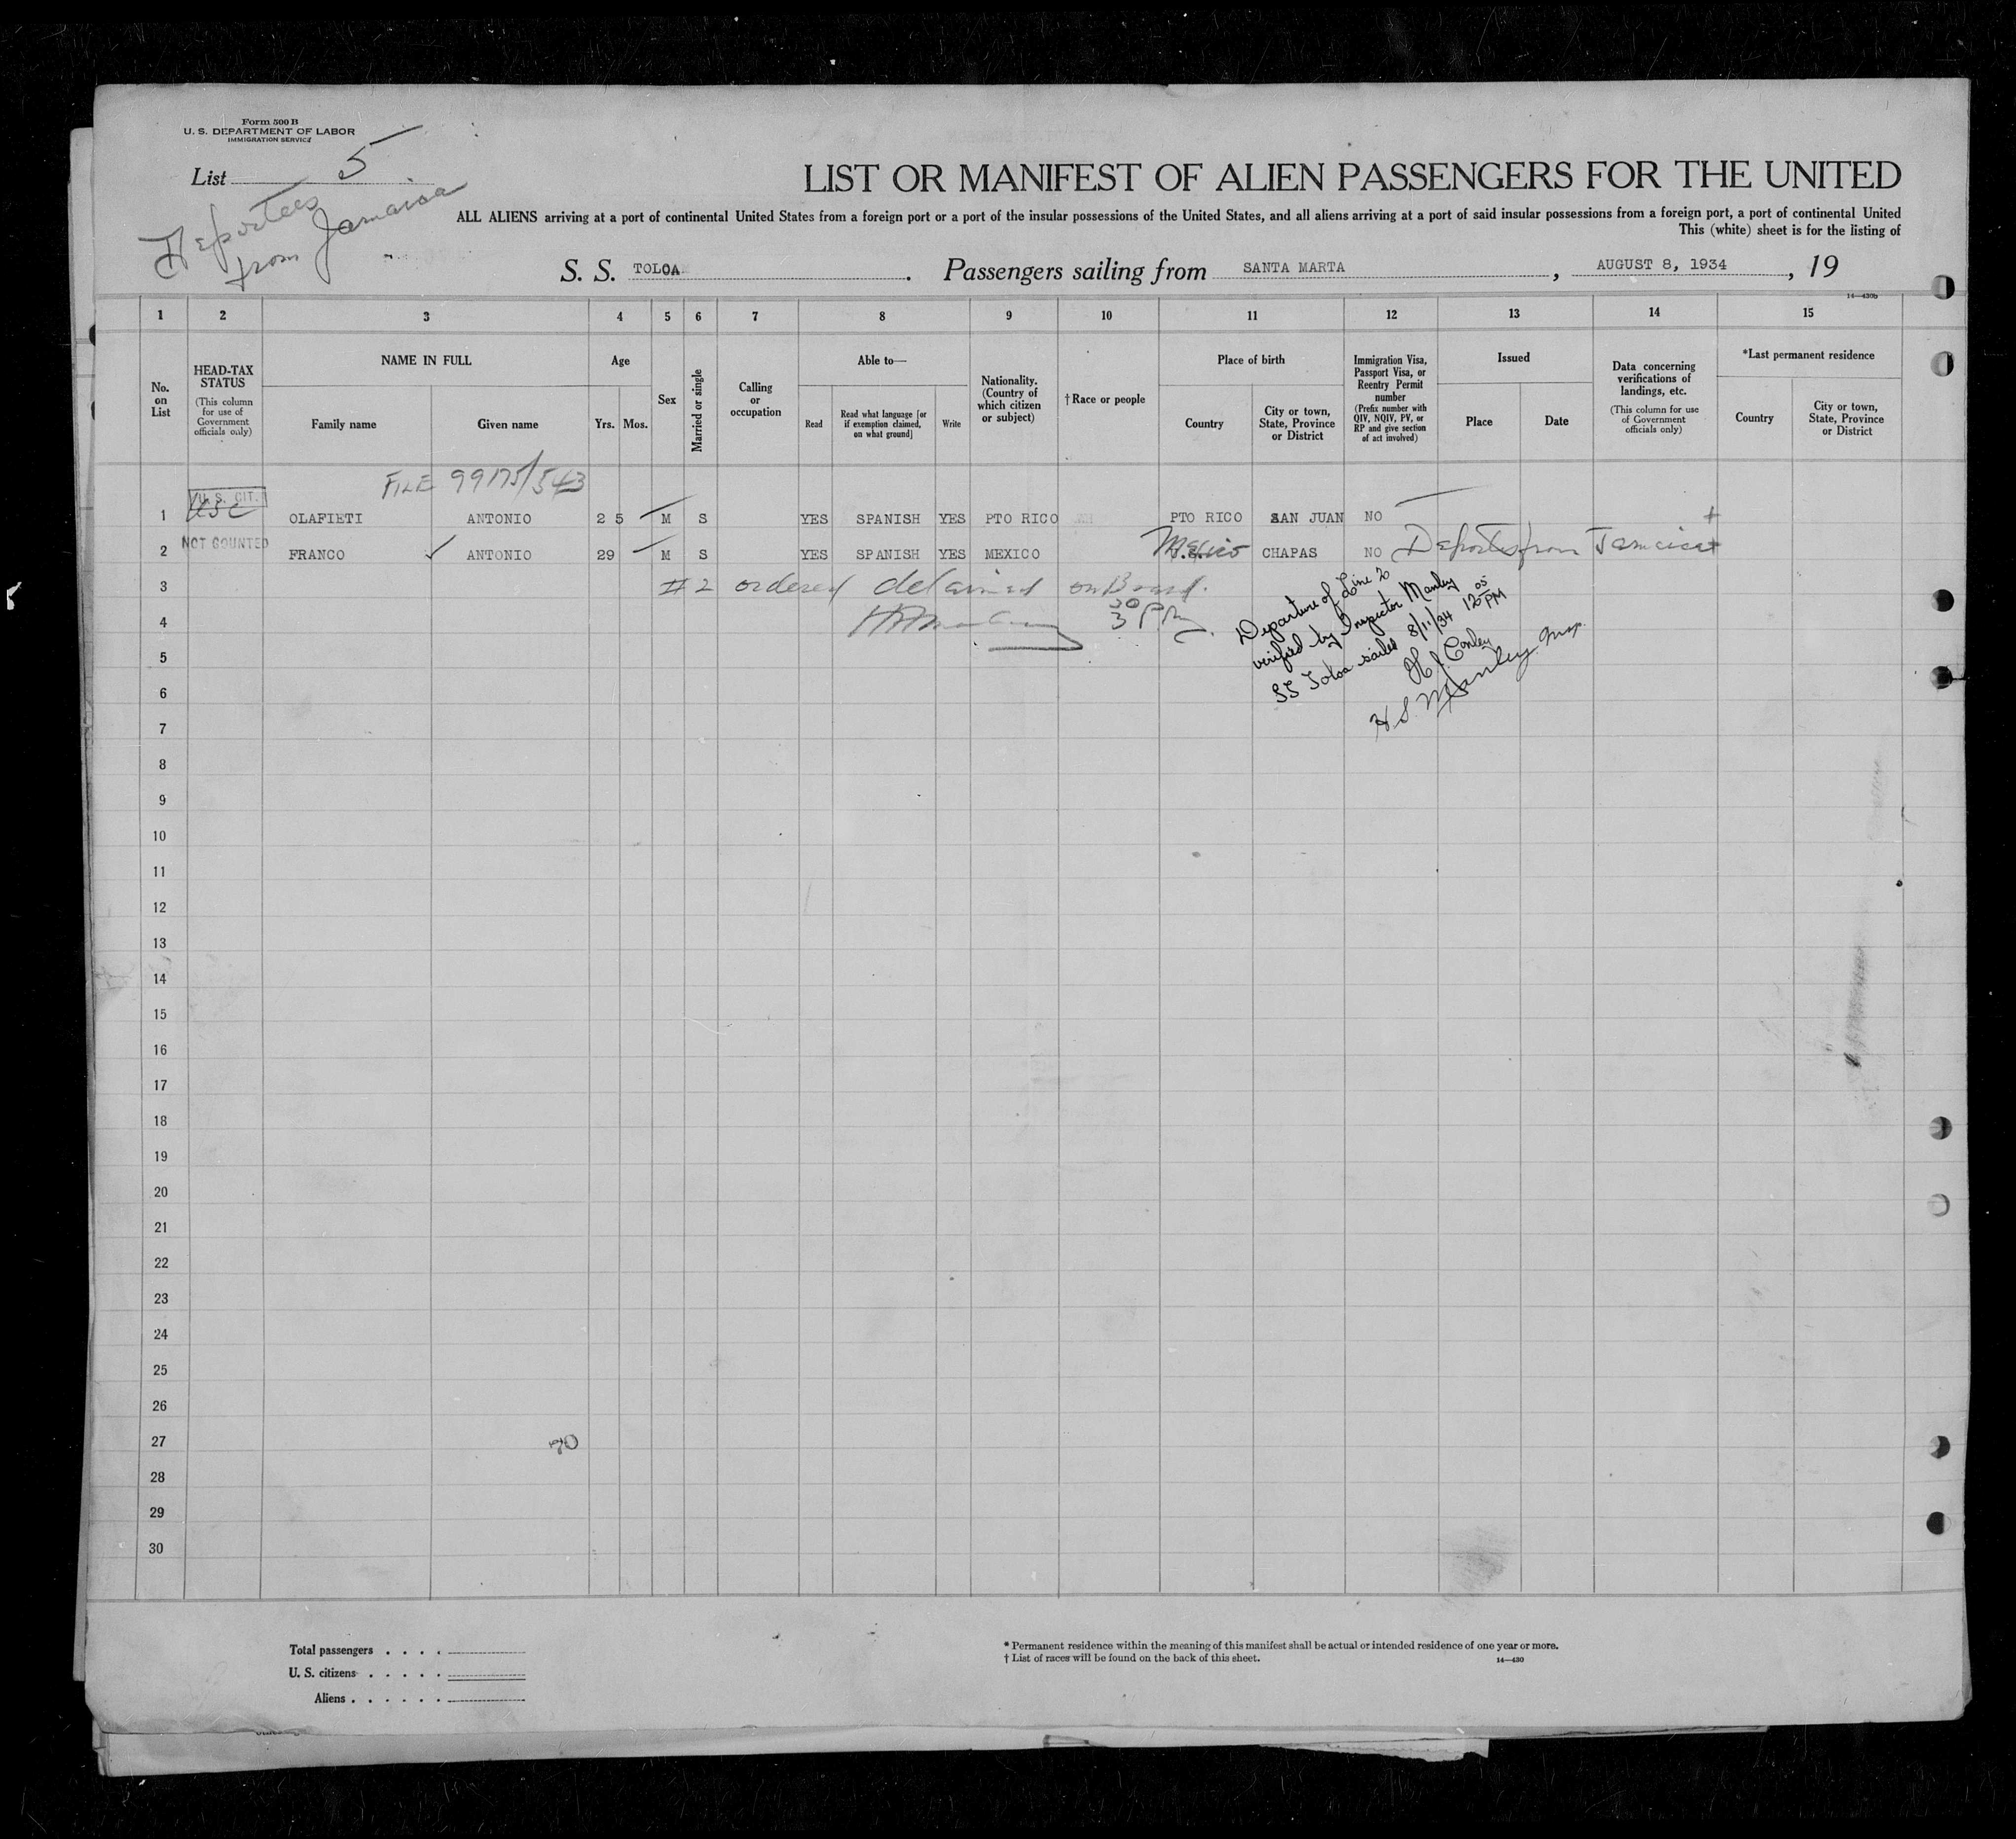 Form 500 B
U. S. DEPARTMENT OF LABOR
IMMIGRATION SERVICE
List 5
Deportees
from Jamaica
LIST OR MANIFEST OF ALIEN PASSENGERS FOR THE UNITED
ALL ALIENS arriving at a port of continental United States from a foreign port or a port of the insular possessions of the United States, and all aliens arriving at a port of said insular possessions from a foreign port, a port of continental United
This (white) sheet is for the listing of
S. S. TOLOA . Passengers sailing from SANTA MARTA , AUGUST 8, 1934 , 19
14—430b
1 2 3 4 5 6 7 8 9 10 11 12 13 14 15
No. on List
HEAD-TAX STATUS (This column for use of Government officials only)
NAME IN FULL
Family name Given name
Age
Yrs. Mos.
Sex
Married or single
Calling or occupation
Able to—
Read Read what language [or if exemption claimed, on what ground] Write
Nationality. (Country of which citizen or subject)
†Race or people
Place of birth
Country City or town, State, Province or District
Immigration Visa, Passport Visa, or Reentry Permit number (Prefix number with QIV, NQIV, PV, or RP and give section of act involved)
Issued
Place Date
Data concerning verifications of landings, etc. (This column for use of Government officials only)
*Last permanent residence
Country City or town, State, Province or District
FILE 99175/543
U. S. CIT.
USC
1 OLAFIETI ANTONIO 2 5 M S YES SPANISH YES PTO RICO PTO RICO SAN JUAN NO
NOT COUNTED
2 FRANCO ✓ ANTONIO 29 M S YES SPANISH YES MEXICO Mexico CHAPAS NO Deportee from Jamaica
3 #2 ordered detained on Board.
4 3 30 P.M.
Departure of Line 2
verified by Inspector Manley
SS Toloa sailed 8/11/34 12 05 PM
H. J. Conley
H. S. Manley Insp.
5
6
7
8
9
10
11
12
13
14
15
16
17
18
19
20
21
22
23
24
25
26
27
28
29
30
Total passengers . . . .
U. S. citizens . . . . .
Aliens . . . . . .
* Permanent residence within the meaning of this manifest shall be actual or intended residence of one year or more.
† List of races will be found on the back of this sheet. 14—430